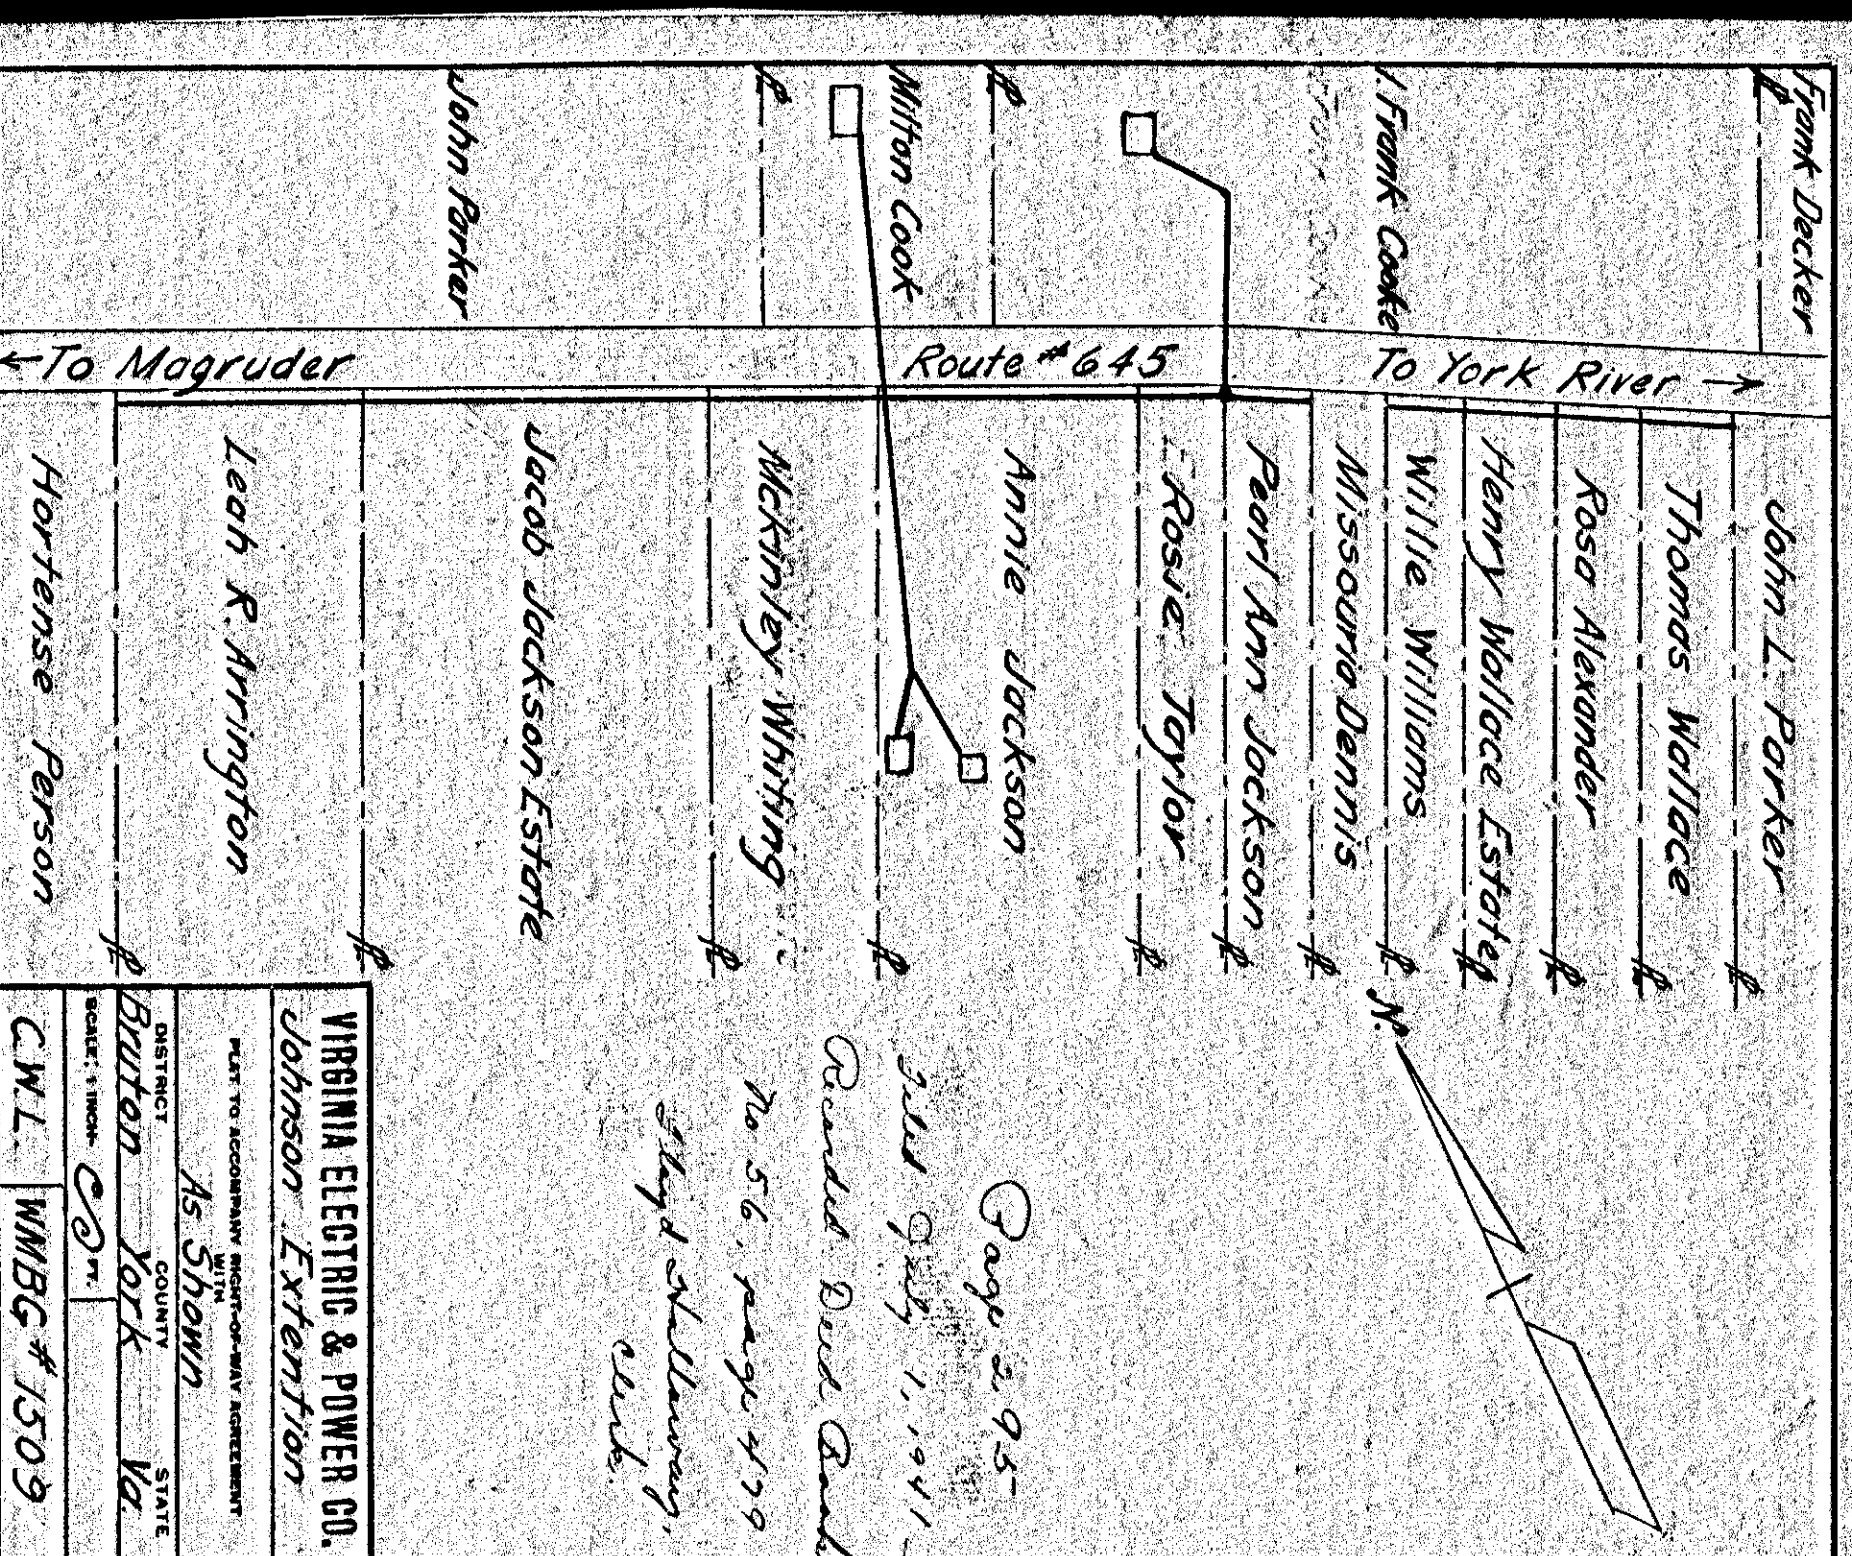 Frank Decker
I Frank Cooke
Milton Cook
John Parker
← To Magruder
Route #645
To York River →
John L. Parker
Thomas Wallace
Rosa Alexander
Henry Wallace Estate
Willie Williams
Missouria Dennis
Pearl Ann Jackson
Rosie Taylor
Annie Jackson
McKinley Whiting
Jacob Jackson Estate
Leah R. Arrington
Hortense Person
N.
Page 295
Filed July 1, 1941
Recorded Deed Book
No 56, page 479
Floyd Hallaway,
Clerk.
VIRGINIA ELECTRIC & POWER CO.
Johnson Extention
PLAT TO ACCOMPANY RIGHT-OF-WAY AGREEMENT
WITH
As Shown
DISTRICT COUNTY STATE
Bruton York Va.
SCALE: 1 INCH= FT.
C.W.L. WMBG # 1509